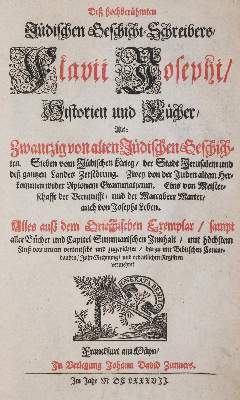 Deß hochberühmten
Jüdischen Geschicht-Schreibers/
Flavii Josephi/
Historien und Bücher/
Als:
Zwantzig von alten Jüdischen Geschich-
ten. Sieben vom Jüdischen Krieg/ der Stadt Jerusalem und
deß gantzen Landes Zerstörung. Zwey von der Juden altem Her-
kommen wider Apionem Grammaticum. Eins von Meister-
schafft der Vernunfft/ und der Maccabeer Marter/
auch von Josephi Leben.
Alles auß dem Griechischen Exemplar/ sampt
aller Bücher und Capitel Summarischen Innhalt/ mit höchstem
Fleiß von neuem verteutscht und zugerichtet/ Biblischen
vermehret
Franckfurt am Mäyn/
In Verlegung Johann David Zunners.
Im Jahr M DC LXXXVII.